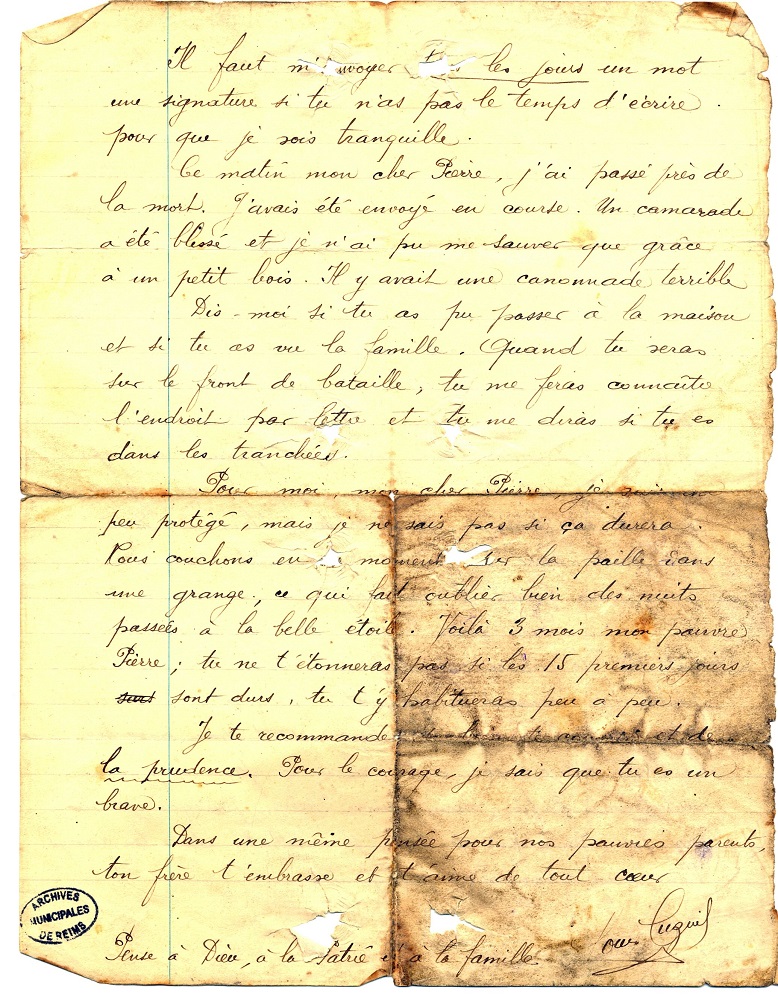 Il faut m'envoyer tous les jours un mot
une signature si tu n'as pas le temps d'écrire.
pour que je sois tranquille.
Ce matin mon cher Pierre, j'ai passé près de
la mort. J'avais été envoyé en course. Un camarade
a été blessé et je n'ai pu me sauver que grâce
à un petit bois. Il y avait une canonnade terrible
Dis-moi si tu as pu passer à la maison
et si tu as vu la famille. Quand tu seras
sur le front de bataille, tu me feras connaître
l'endroit par lettre et tu me diras si tu es
dans les tranchées.
Pour moi, mon cher Pierre, je suis un
peu protégé, mais je ne sais pas si ça durera.
Nous couchons en ce moment sur la paille dans
une grange, ce qui fait oublier bien des nuits
passées à la belle étoile. Voilà 3 mois mon pauvre
Pierre; tu ne t'étonneras pas si les 15 premiers jours
sont durs, tu t'y habitueras peu à peu.
Je te recommande et de
la prudence. Pour le courage, je sais que tu es un
brave.
Dans une même pensée pour nos pauvres parents,
ton frère t'embrasse et t'aime de tout cœur
Pense à Dieu, à la Patrie et à la famille
ARCHIVES
MUNICIPALES
DE REIMS